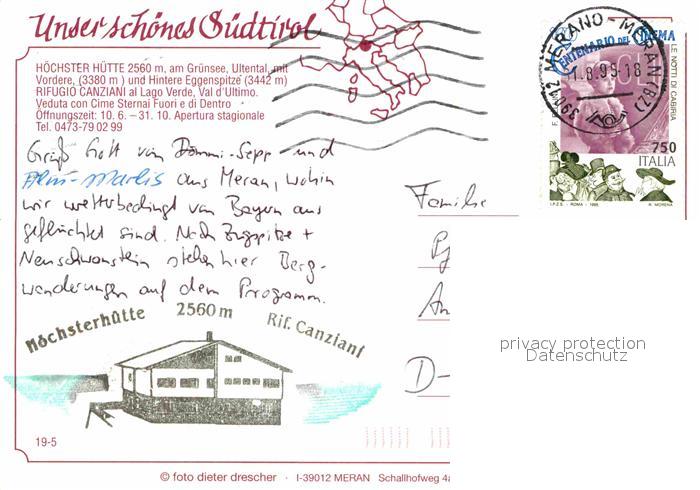 Unser schönes Südtirol
HÖCHSTER HÜTTE 2560 m, am Grünsee, Ultental, mit
Vordere, (3380 m) und Hintere Eggenspitze (3442 m)
RIFUGIO CANZIANI al Lago Verde, Val d'Ultimo.
Veduta con Cime Sternai Fuori e di Dentro
Öffnungszeit: 10. 6. – 31. 10. Apertura stagionale
Tel. 0473-79 02 99
Grüß Gott von Sepp und
aus Meran, wohin
wir wetterbedingt von Bayern aus
geflüchtet sind. Nach Zugspitze +
Neuschwanstein stehen hier Berg-
wanderungen auf dem Programm.
Höchsterhütte 2560 m Rif. Canziani
19-5
© foto dieter drescher · I-39012 MERAN Schallhofweg 4a
CENTENARIO DEL CINEMA
LE NOTTI DI CABIRIA
750
ITALIA
I.P.Z.S. - ROMA - 1995 R. MORENA
39012 MERANO - MERAN (BZ)
1.8.95-18
Familie
D-
privacy protection
Datenschutz